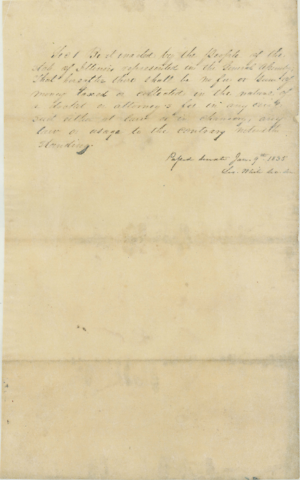 Sec 1 Be it enacted by the People of the
State of Illinois represented in the General Assembly
That hereafter there shall be no fee or sum of
money taxed or collected in the nature of
a docket or attorney's fee in any
suit either at law or in chancery, any
law or usage to the contrary notwith-
standing
Passed Senate Jan. 9th 1835